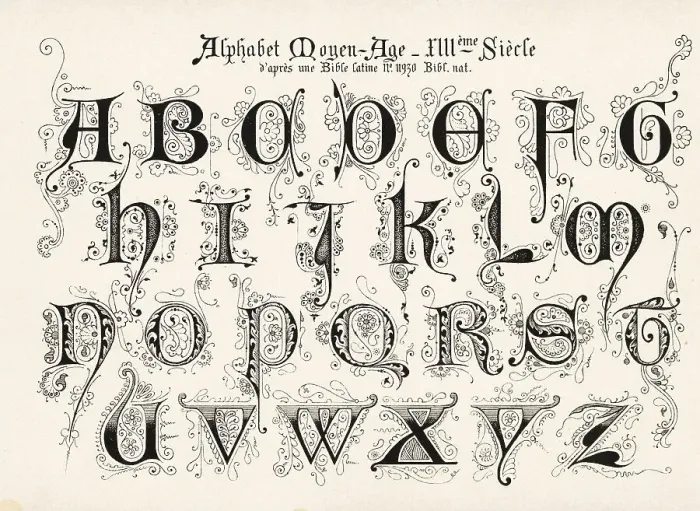 Alphabet Moyen-Age - XIIIème Siècle
d'après une Bible latine N° 11930 Bibl. nat.
A B C D E F G
h I J K L M
N O P Q R S T
U V W X Y Z